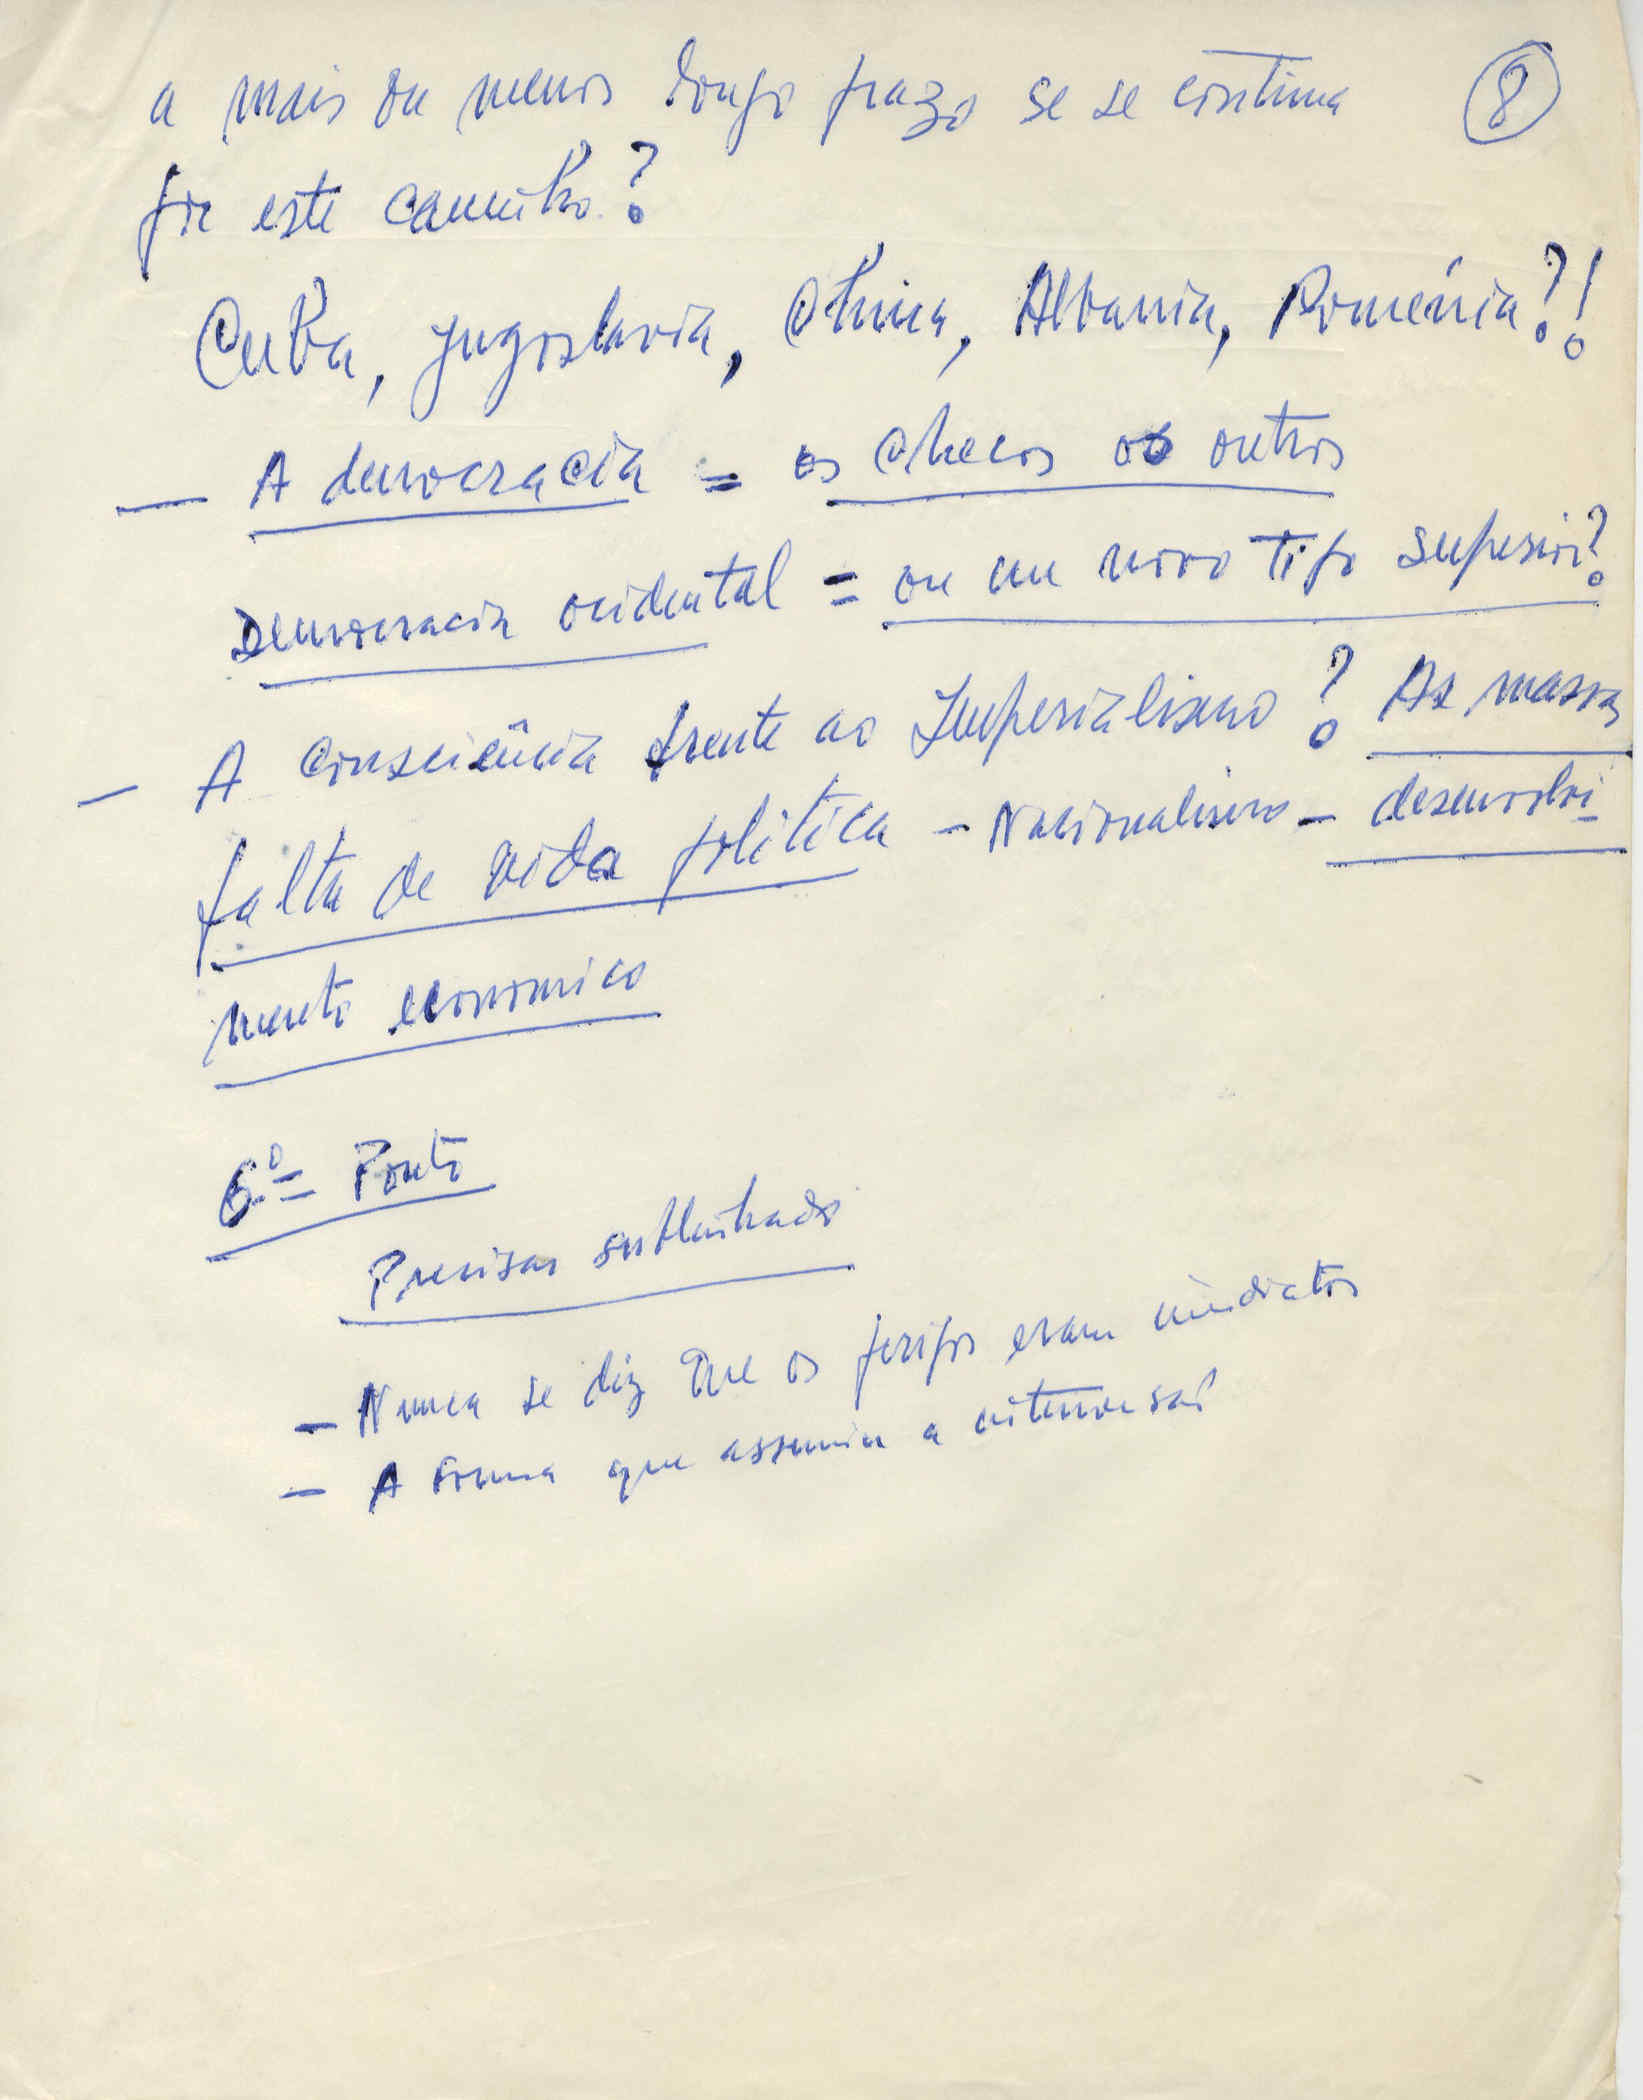 a mais ou menos longo prazo se se continua 8
por este caminho?
Cuba, Jugoslavia, China, Albania, Roménia?!
— A democracia = os checos os outros
Democracia ocidental = ou um novo tipo superior?
— A consciência frente ao Imperialismo? As massas
falta de vida politica — Nacionalismo — desenvolvi
mento economico
6º = Ponto
Precisar sublinhado
— Nunca se diz que os perigos eram imediatos
— A forma que assumiu a intervensão